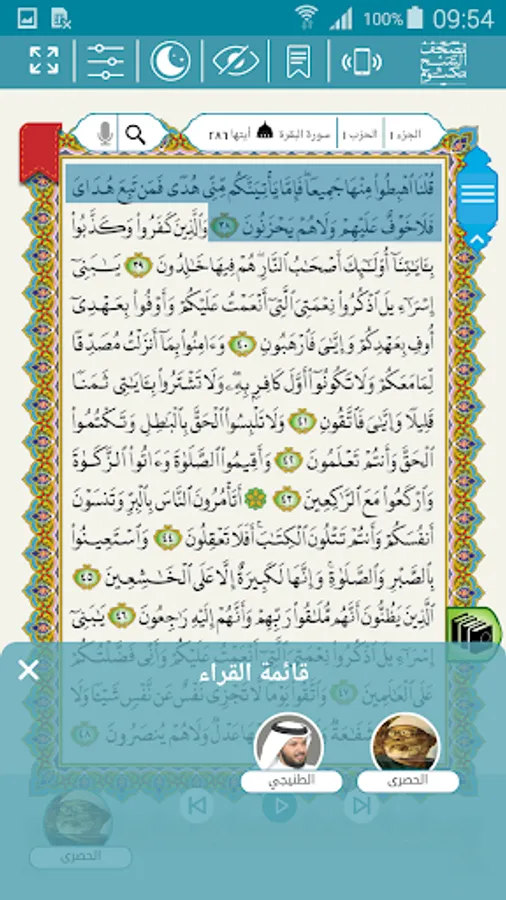 100% 09:54
مصحف الشيخ مكتوم
الجزء ١ الحزب ١ سورة البقرة آيتها ٢٨٦
قُلْنَا ٱهْبِطُوا۟ مِنْهَا جَمِيعًا فَإِمَّا يَأْتِيَنَّكُم مِّنِّى هُدًى فَمَن تَبِعَ هُدَاىَ
فَلَا خَوْفٌ عَلَيْهِمْ وَلَا هُمْ يَحْزَنُونَ ٣٨ وَٱلَّذِينَ كَفَرُوا۟ وَكَذَّبُوا۟
بِـَٔايَٰتِنَآ أُو۟لَٰٓئِكَ أَصْحَٰبُ ٱلنَّارِ هُمْ فِيهَا خَٰلِدُونَ ٣٩ يَٰبَنِىٓ
إِسْرَٰٓءِيلَ ٱذْكُرُوا۟ نِعْمَتِىَ ٱلَّتِىٓ أَنْعَمْتُ عَلَيْكُمْ وَأَوْفُوا۟ بِعَهْدِىٓ
أُوفِ بِعَهْدِكُمْ وَإِيَّٰىَ فَٱرْهَبُونِ ٤٠ وَءَامِنُوا۟ بِمَآ أَنزَلْتُ مُصَدِّقًا
لِّمَا مَعَكُمْ وَلَا تَكُونُوٓا۟ أَوَّلَ كَافِرٍۭ بِهِۦ وَلَا تَشْتَرُوا۟ بِـَٔايَٰتِى ثَمَنًا
قَلِيلًا وَإِيَّٰىَ فَٱتَّقُونِ ٤١ وَلَا تَلْبِسُوا۟ ٱلْحَقَّ بِٱلْبَٰطِلِ وَتَكْتُمُوا۟
ٱلْحَقَّ وَأَنتُمْ تَعْلَمُونَ ٤٢ وَأَقِيمُوا۟ ٱلصَّلَوٰةَ وَءَاتُوا۟ ٱلزَّكَوٰةَ
وَٱرْكَعُوا۟ مَعَ ٱلرَّٰكِعِينَ ٤٣ أَتَأْمُرُونَ ٱلنَّاسَ بِٱلْبِرِّ وَتَنسَوْنَ
أَنفُسَكُمْ وَأَنتُمْ تَتْلُونَ ٱلْكِتَٰبَ أَفَلَا تَعْقِلُونَ ٤٤ وَٱسْتَعِينُوا۟
بِٱلصَّبْرِ وَٱلصَّلَوٰةِ وَإِنَّهَا لَكَبِيرَةٌ إِلَّا عَلَى ٱلْخَٰشِعِينَ ٤٥
ٱلَّذِينَ يَظُنُّونَ أَنَّهُم مُّلَٰقُوا۟ رَبِّهِمْ وَأَنَّهُمْ إِلَيْهِ رَٰجِعُونَ ٤٦ يَٰبَنِىٓ
إِسْرَٰٓءِيلَ ٱذْكُرُوا۟ نِعْمَتِىَ ٱلَّتِىٓ أَنْعَمْتُ عَلَيْكُمْ وَأَنِّى فَضَّلْتُكُمْ
قائمة القراء
عَلَى ٱلْعَٰلَمِينَ ٤٧ وَٱتَّقُوا۟ يَوْمًا لَّا تَجْزِى نَفْسٌ عَن نَّفْسٍ شَيْـًٔا وَلَا
شَفَٰعَةٌ عَدْلٌ وَلَا هُمْ يُنصَرُونَ ٤٨
الحصرى الطنيجي
الحصرى